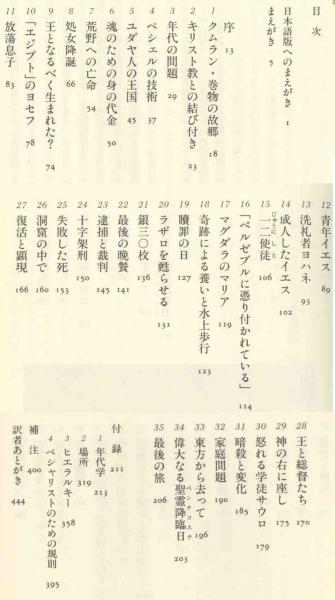 目次
日本語版へのまえがき 1
まえがき 5
序 13
1 クムラン・巻物の故郷 18
2 キリスト教との結び付き 23
3 年代の問題 29
4 ペシェルの技術 37
5 ユダヤ人の王国 45
6 魂のための身の代金 50
7 荒野への亡命 54
8 処女降誕 66
9 王となるべく生まれた？ 74
10 「エジプト」のヨセフ 78
11 放蕩息子 83
12 青年イエス 89
13 洗礼者ヨハネ 93
14 成人したイエス 102
15 一二使徒 106
じゅうにしと
16 「ベルゼブルに憑り付かれている」 114
17 マグダラのマリア 119
18 奇跡による養いと水上歩行 123
19 贖罪の日 127
20 ラザロを甦らせる 131
21 銀三〇枚 136
22 最後の晩餐 141
23 逮捕と裁判 145
24 十字架刑 150
25 失敗した死 153
26 洞窟の中で 160
27 復活と顕現 166
28 王と総督たち 170
29 神の右に座し 175
30 怒れる学徒サウロ 179
31 暗殺と変化 185
32 家庭問題 190
33 東方から去って 196
34 偉大なる聖霊降臨日 203
ペンテコステ
35 最後の旅 206
付録 211
1 年代学 213
2 場所 319
3 ヒエラルキー 358
4 ペシャリストのための規則 395
補注 400
訳者あとがき 444